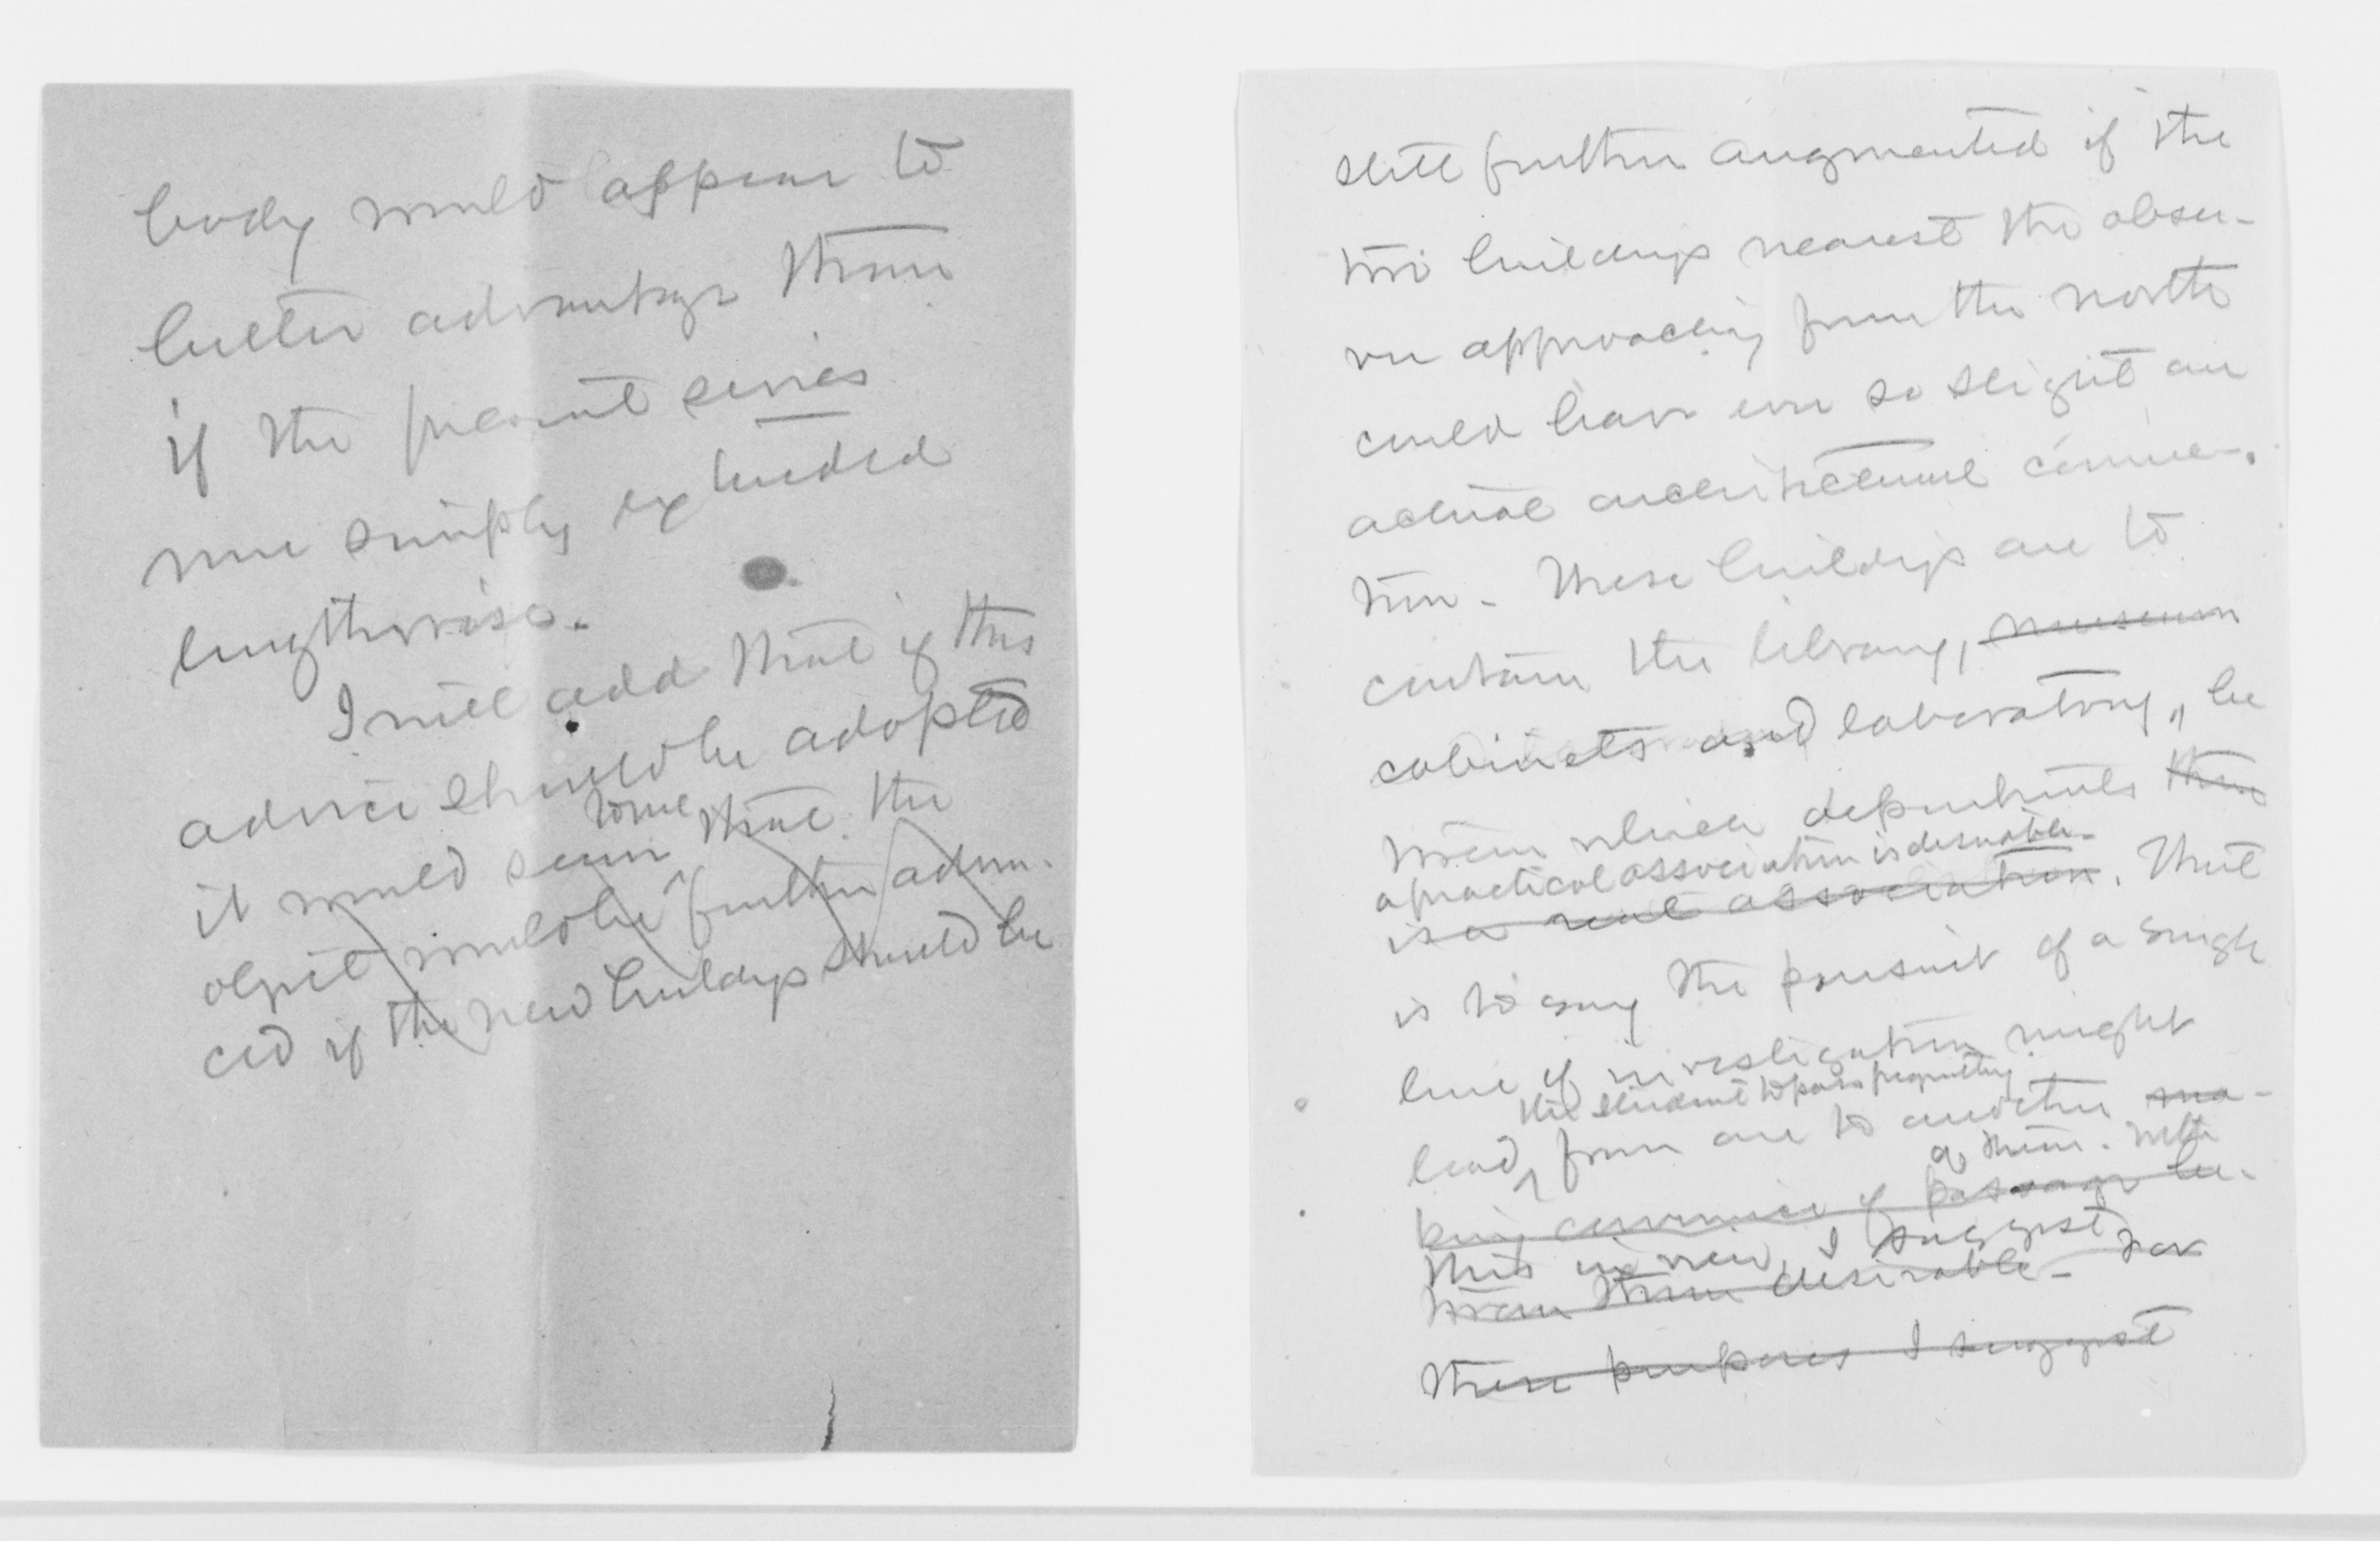 body would appear to
better advantage than
if the present series
were simply extended
lengthwise.
I will add that if this
advice should be adopted
it would seem to me that the
object would be further advan-
ced if the new buildings should be
still further augmented if the
two buildings nearest the obser-
ver approaching from the north
could have even so slight an
actual architectural connec-
tion. These buildings are to
contain the library, museum
cabinets and laboratory, be
tween which departments there
a practical association is desirable.
is a real association. That
is to say the pursuit of a single
line of investigation might
the student to pass frequently
lead from one to another ma-
of them. With
king convenience of passage be-
this in view, I suggest
tween them desirable. For
these purposes I suggest